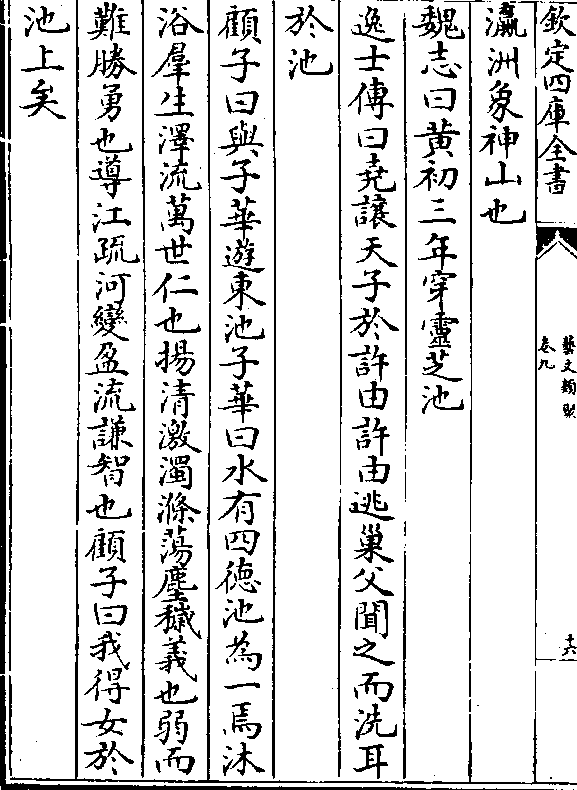 欽定四庫全書
藝文類聚
卷九
十六
瀛洲象神山也
魏志曰黄初三年穿靈芝池
逸士傳曰堯讓天子於許由許由逃巢父聞之而洗耳
於池
顧子曰與子華遊東池子華曰水有四德池為一焉沐
浴羣生澤流萬世仁也揚清激濁滌蕩塵穢義也弱而
難勝勇也導江疏河變盈流謙智也顧子曰我得女於
池上矣